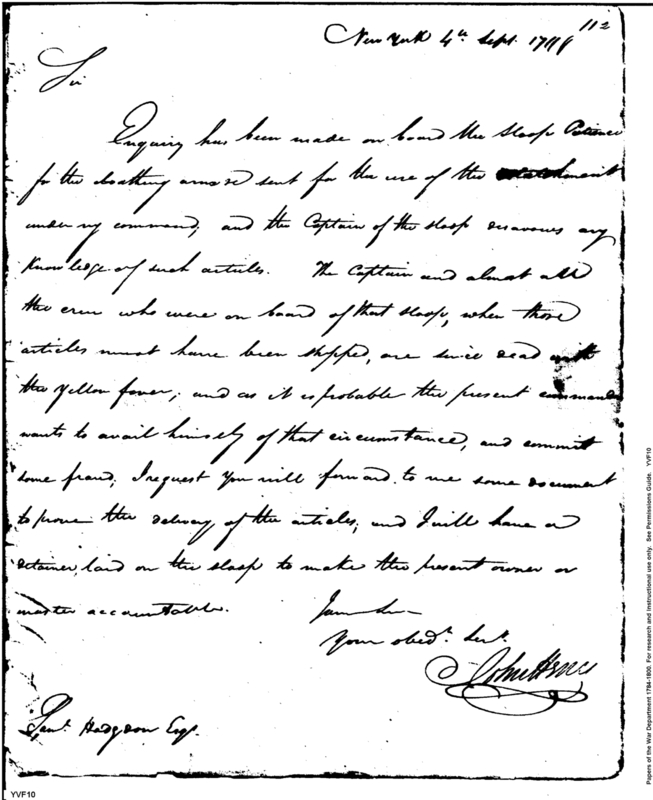 112
New York 4th Sept. 1798
Sir
Enquiry has been made on board the Sloop Patience
for the cloathing arms &c sent for the use of the detachment
under my command, and the Captain of the sloop disavows any
knowledge of such articles. The Captain and almost all
the crew who were on board of that sloop, when those
articles must have been shipped, are since dead with
the yellow fever; and as it is probable the present commander
wants to avail himself of that circumstance, and commit
some fraud, I request you will forward to me some document
to prove the delivery of the articles, and I will have a
detainer laid on the sloop to make the present owner or
master accountable. I am Sir
Your obedt. Servt.
John
Saml. Hodgdon Esqr.
YVF10
Papers of the War Department 1784-1800. For research and instructional use only. See Permissions Guide. YVF10